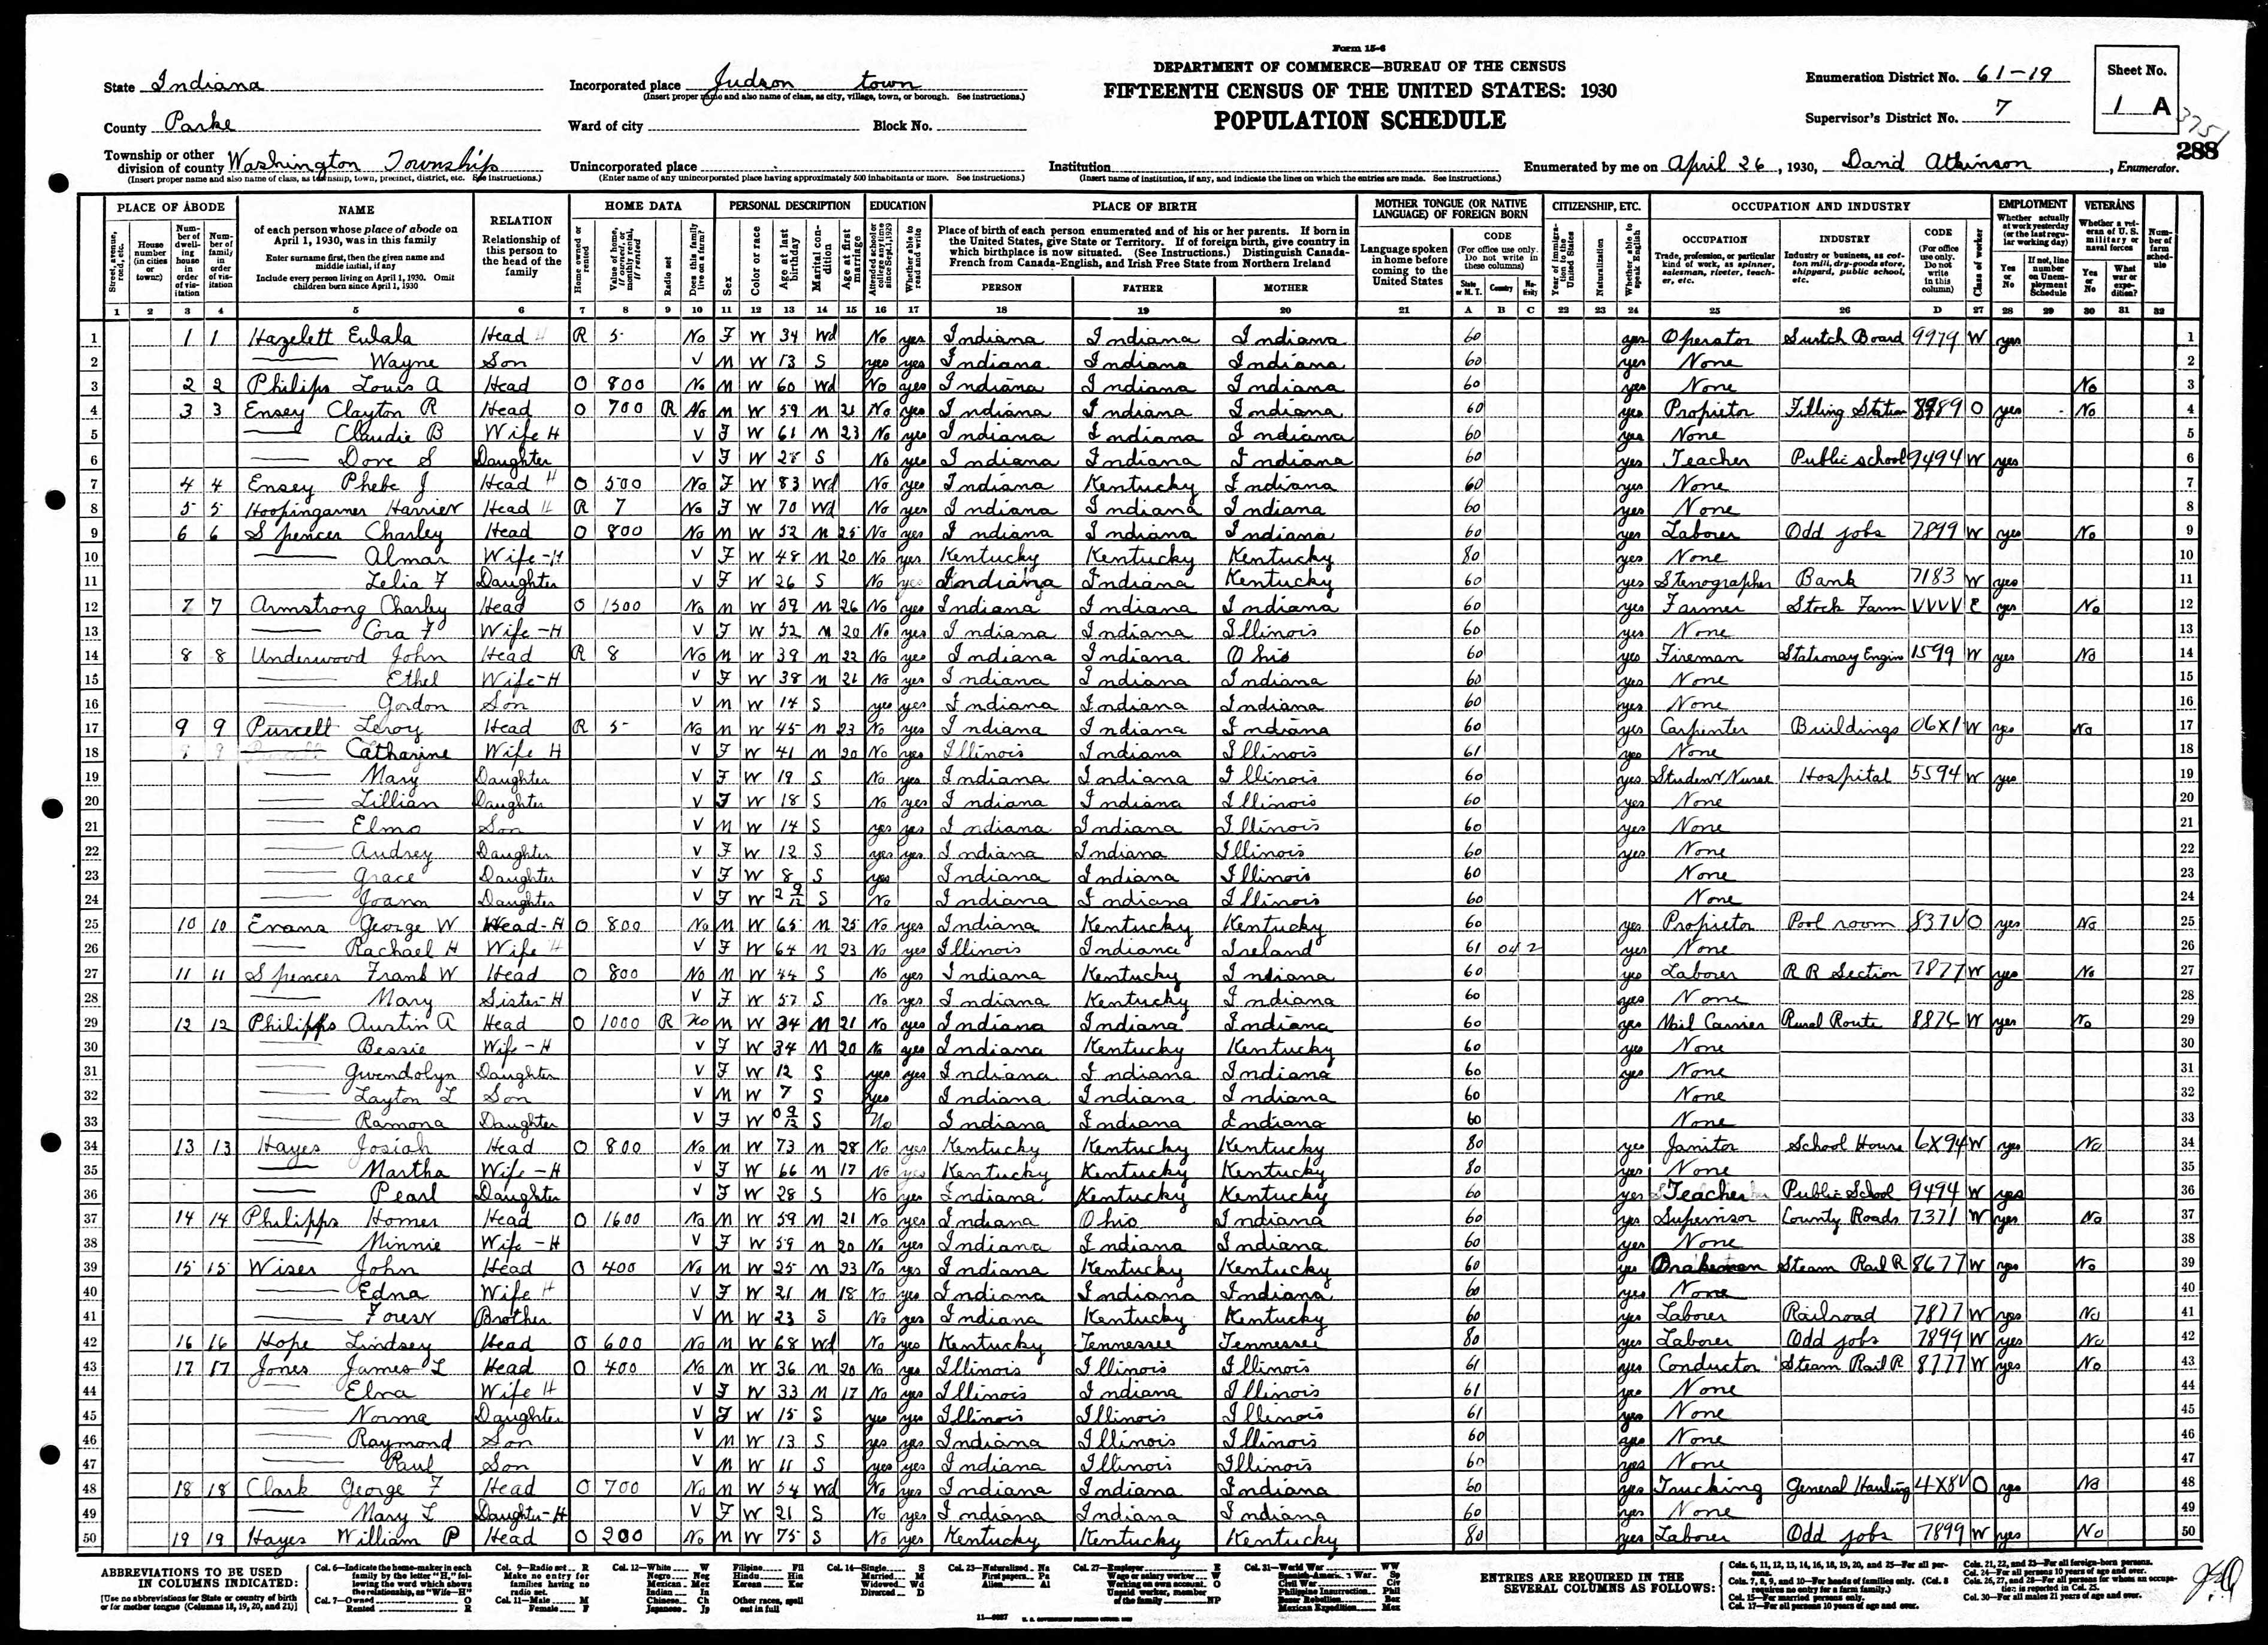 Form 15-6
DEPARTMENT OF COMMERCE—BUREAU OF THE CENSUS
FIFTEENTH CENSUS OF THE UNITED STATES: 1930
POPULATION SCHEDULE
State Indiana
County Parke
Township or other division of county Washington Township
(Insert proper name and also name of class, as township, town, precinct, district, etc. See instructions.)
Incorporated place Judson town
(Insert proper name and also name of class, as city, village, town, or borough. See instructions.)
Ward of city Block No.
Unincorporated place
(Enter name of any unincorporated place having approximately 500 inhabitants or more. See instructions.)
Institution
(Insert name of institution, if any, and indicate the lines on which the entries are made. See instructions.)
Enumeration District No. 61-19
Supervisor's District No. 7
Sheet No. 1 A
3751
288
Enumerated by me on April 26, 1930, David Atkinson, Enumerator.
PLACE OF ABODE NAME RELATION HOME DATA PERSONAL DESCRIPTION EDUCATION PLACE OF BIRTH MOTHER TONGUE (OR NATIVE LANGUAGE) OF FOREIGN BORN CITIZENSHIP, ETC. OCCUPATION AND INDUSTRY EMPLOYMENT VETERANS
1 1 1 Hazelett Eulala Head H R 5 No F W 34 Wd No yes Indiana Indiana Indiana 60 yes Operator Switch Board 9979 W yes 1
2 Wayne Son V M W 13 S yes yes Indiana Indiana Indiana 60 yes None 2
3 2 2 Philips Louis A Head O 800 No M W 60 Wd No yes Indiana Indiana Indiana 60 yes None No 3
4 3 3 Ensey Clayton R Head O 700 R No M W 59 M 21 No yes Indiana Indiana Indiana 60 yes Propietor Filling Station O yes No 4
5 Claudie B Wife H V F W 61 M 23 No yes Indiana Indiana Indiana 60 yes None 5
6 Dove S Daughter V F W 28 S No yes Indiana Indiana Indiana 60 yes Teacher Public school 9494 W yes 6
7 4 4 Ensey Phebe J Head H O 500 No F W 83 Wd No yes Indiana Kentucky Indiana 60 yes None 7
8 5 5 Hoopingarner Harriet Head H R 7 No F W 70 Wd No yes Indiana Indiana Indiana 60 yes None 8
9 6 6 Spencer Charley Head O 800 No M W 52 M 25 No yes Indiana Indiana Indiana 60 yes Laborer Odd jobs 7899 W yes No 9
10 Almar Wife-H V F W 48 M 20 No yes Kentucky Kentucky Kentucky 80 yes None 10
11 Lelia F Daughter V F W 26 S No yes Indiana Indiana Kentucky 60 yes Stenographer Bank 7183 W yes 11
12 7 7 Armstrong Charley Head O 1500 No M W 59 M 26 No yes Indiana Indiana Indiana 60 yes Farmer Stock Farm VVVV E yes No 12
13 Cora F Wife-H V F W 52 M 20 No yes Indiana Indiana Illinois 60 yes None 13
14 8 8 Underwood John Head R 8 No M W 39 M 22 No yes Indiana Indiana Ohio 60 yes Fireman Stationay Engin 1599 W yes No 14
15 Ethel Wife-H V F W 38 M 21 No yes Indiana Indiana Indiana 60 yes None 15
16 Gordon Son V M W 14 S yes yes Indiana Indiana Indiana 60 yes None 16
17 9 9 Purcell Leroy Head R 5 No M W 45 M 23 No yes Indiana Indiana Indiana 60 yes Carpenter Buildings 06X1 W yes No 17
18 Catharine Wife H V F W 41 M 20 No yes Illinois Indiana Illinois 61 yes None 18
19 Mary Daughter V F W 19 S No yes Indiana Indiana Illinois 60 yes Student Nurse Hospital 5594 W yes 19
20 Lillian Daughter V F W 18 S No yes Indiana Indiana Illinois 60 yes None 20
21 Elmo Son V M W 14 S yes yes Indiana Indiana Illinois 60 yes None 21
22 Audrey Daughter V F W 12 S yes yes Indiana Indiana Illinois 60 yes None 22
23 Grace Daughter V F W 8 S yes Indiana Indiana Illinois 60 None 23
24 Joann Daughter V F W 2 9/12 S No Indiana Indiana Illinois 60 None 24
25 10 10 Evans George W Head-H O 800 No M W 65 M 25 No yes Indiana Kentucky Kentucky 60 yes Propietor Pool room 837V O yes No 25
26 Rachael H Wife H V F W 64 M 23 No yes Illinois Indiana Ireland 61 04 2 yes None 26
27 11 11 Spencer Frank W Head O 800 No M W 44 S No yes Indiana Kentucky Indiana 60 yes Laborer R R Section 7877 W yes No 27
28 Mary Sister-H V F W 57 S No yes Indiana Kentucky Indiana 60 yes None 28
29 12 12 Philipps Austin A Head O 1000 R No M W 34 M 21 No yes Indiana Indiana Indiana 60 yes Mail Carrier Rural Route 8876 W yes No 29
30 Bessie Wife-H V F W 34 M 20 No yes Indiana Kentucky Kentucky 60 yes None 30
31 Gwendolyn Daughter V F W 12 S yes yes Indiana Indiana Indiana 60 yes None 31
32 Layton L Son V M W 7 S yes Indiana Indiana Indiana 60 None 32
33 Ramona Daughter V F W 0 9/12 S No Indiana Indiana Indiana 60 None 33
34 13 13 Hayes Josiah Head O 800 No M W 73 M 28 No yes Kentucky Kentucky Kentucky 80 yes Janitor School House 6X94 W yes No 34
35 Martha Wife-H V F W 66 M 17 No yes Kentucky Kentucky Kentucky 80 yes None 35
36 Pearl Daughter V F W 28 S No yes Indiana Kentucky Kentucky 60 yes Teacher Public School 9494 W yes 36
37 14 14 Philipps Homer Head O 1600 No M W 59 M 21 No yes Indiana Ohio Indiana 60 yes Supervisor County Roads 7371 W yes No 37
38 Minnie Wife-H V F W 59 M 20 No yes Indiana Indiana Indiana 60 yes None 38
39 15 15 Wiser John Head O 400 No M W 25 M 23 No yes Indiana Kentucky Kentucky 60 yes Brakeman Steam Rail R 8677 W yes No 39
40 Edna Wife H V F W 21 M 18 No yes Indiana Indiana Indiana 60 yes None 40
41 Forest Brother V M W 23 S No yes Indiana Kentucky Kentucky 60 yes Laborer Railroad 7877 W yes No 41
42 16 16 Hope Lindsey Head O 600 No M W 68 Wd No yes Kentucky Tennessee Tennessee 80 yes Laborer Odd jobs 7899 W yes No 42
43 17 17 Jones James L Head O 400 No M W 36 M 20 No yes Illinois Illinois Illinois 61 yes Conductor Steam Rail R 8777 W yes No 43
44 Elna Wife H V F W 33 M 17 No yes Illinois Indiana Illinois 61 yes None 44
45 Norma Daughter V F W 15 S yes yes Illinois Illinois Illinois 61 yes None 45
46 Raymond Son V M W 13 S yes yes Indiana Illinois Illinois 60 yes None 46
47 Paul Son V M W 11 S yes yes Indiana Illinois Illinois 60 yes None 47
48 18 18 Clark George F Head O 700 No M W 54 Wd No yes Indiana Indiana Indiana 60 yes Trucking General Hauling 4X8V O yes No 48
49 Mary L Daughter-H V F W 21 S No yes Indiana Indiana Indiana 60 yes None 49
50 19 19 Hayes William P Head O 200 No M W 75 S No yes Kentucky Kentucky Kentucky 80 yes Laborer Odd jobs 7899 W yes No 50
ABBREVIATIONS TO BE USED IN COLUMNS INDICATED:
[Use no abbreviations for State or country of birth or for mother tongue (Columns 18, 19, 20, and 21)]
ENTRIES ARE REQUIRED IN THE SEVERAL COLUMNS AS FOLLOWS: